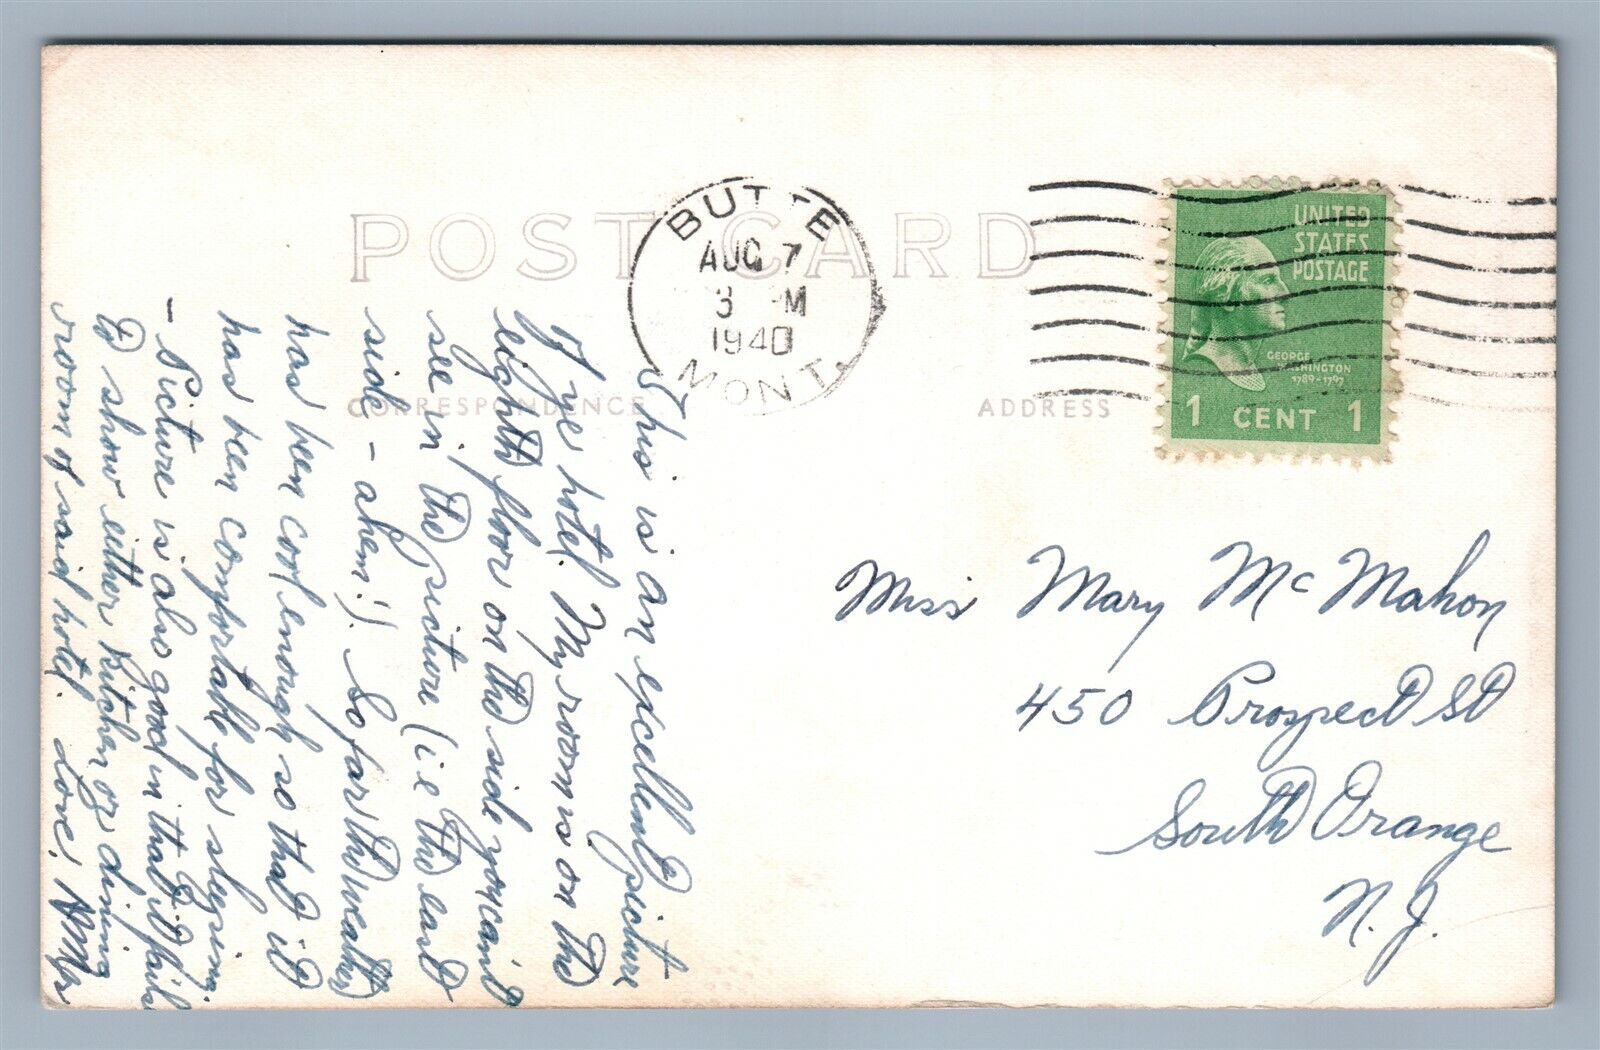 POST CARD
BUTTE
AUG 7
3 M
1940
MONT.
UNITED
STATES
POSTAGE
GEORGE
WASHINGTON
1789-1797
1 CENT 1
CORRESPONDENCE
ADDRESS
This is an excellent picture
of ye hotel. My room is on the
eighth floor on the side you can't
see in the picture (i.e the east
side - ahem!). So far the weather
has been cool enough so that it
has been comfortable for sleeping.
- Picture is also good in that it fails
to show either kitchen or dining
room of said hotel. Love,
Miss Mary McMahon
450 Prospect St
South Orange
N. J.